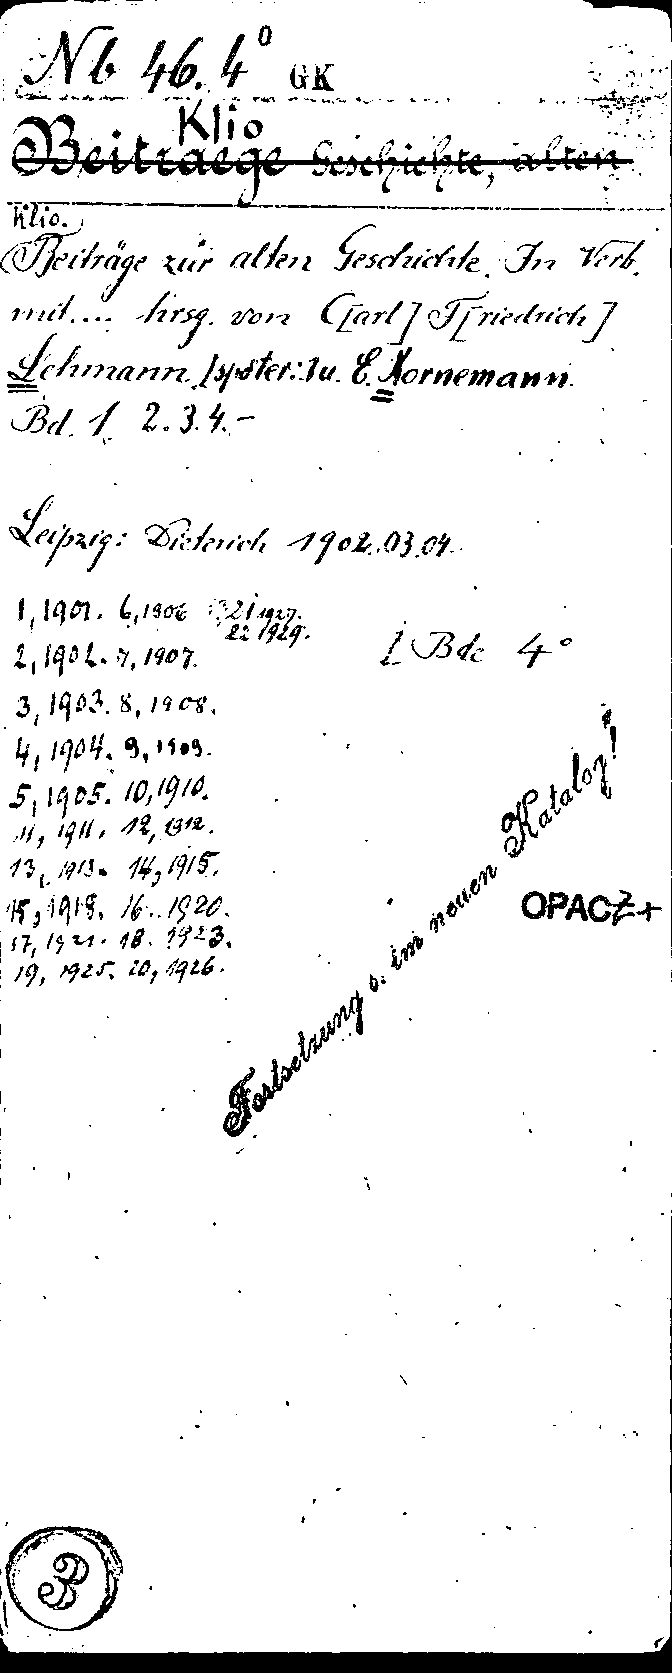 Nb 46. 4° GK
Klio
Beitraege Geschichte, alten
Klio.
Beiträge zur alten Geschichte. In Verb.
mit.... hrsg. von C[arl] F[riedrich]
Lehmann [später:] u. E. Kornemann.
Bd. 1. 2. 3. 4. –
Leipzig: Dieterich 1902.03.04.
1, 1901. 6, 1906 21 1927.
22 1929.
2, 1902. 7, 1907.
[ Bde 4°
3, 1903. 8, 1908.
4, 1904. 9, 1909.
5, 1905. 10, 1910.
11, 1911. 12, 1912.
13, 1913. 14, 1915.
15, 1918. 16. 1920.
17, 1921. 18. 1923.
19, 1925. 20, 1926.
Fortsetzung s. im neuen Katalog!
OPACZ+
3